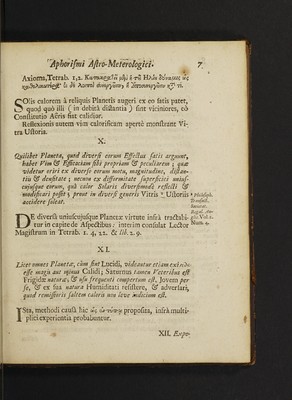 Aphorismi Astro-Meterologici. 7
Axioma, Tetrab. 1, 2.
SOlis calorem à reliquis Planetis augeri ex eo satis patet,
quod quò illi ( in debitâ distantia ) sint viciniores, eò
Constitutio Aëris fiat calidior.
Reflexionis autem vim calorificam apertè monstrant Vi-
tra Ustoria.
X.
Quilibet Planeta, quod diversi eorum Effectus satis arguunt,
habet Vim & Efficaciam sibi propriam & peculiarem; quæ
videtur oriri ex diverso eorum motu, magnitudine, distan-
tiâ & densitate; necnon ex difformitate superficiei unius-
cujusque eorum, quâ calor Solaris diversimodè reflecti &
modificari possit; prout in diversi generis Vitris * Ustoriis
accidere soleat.
DE diversâ uniuscujusque Planetæ virtute infra tractabi-
tur in capite de Aspectibus: interim consulat Lector
Magistrum in Tetrab. 1. 4, 22. & lib. 2. 9.
XI.
Licet omnes Planetæ, cùm sint Lucidi, videantur etiam exinde
esse magis aut minus Calidi; Saturnus tamen Veteribus est
Frigidæ naturæ, & usu frequenti compertum est. Jovem per
se, & ex sua natura Humiditati resistere, & adversari,
quod remissioris saltem caloris non leve indicium est.
ISta, methodi causâ hic proposita, infrà multi-
plici experientiâ probabuntur.
XII. Expo-